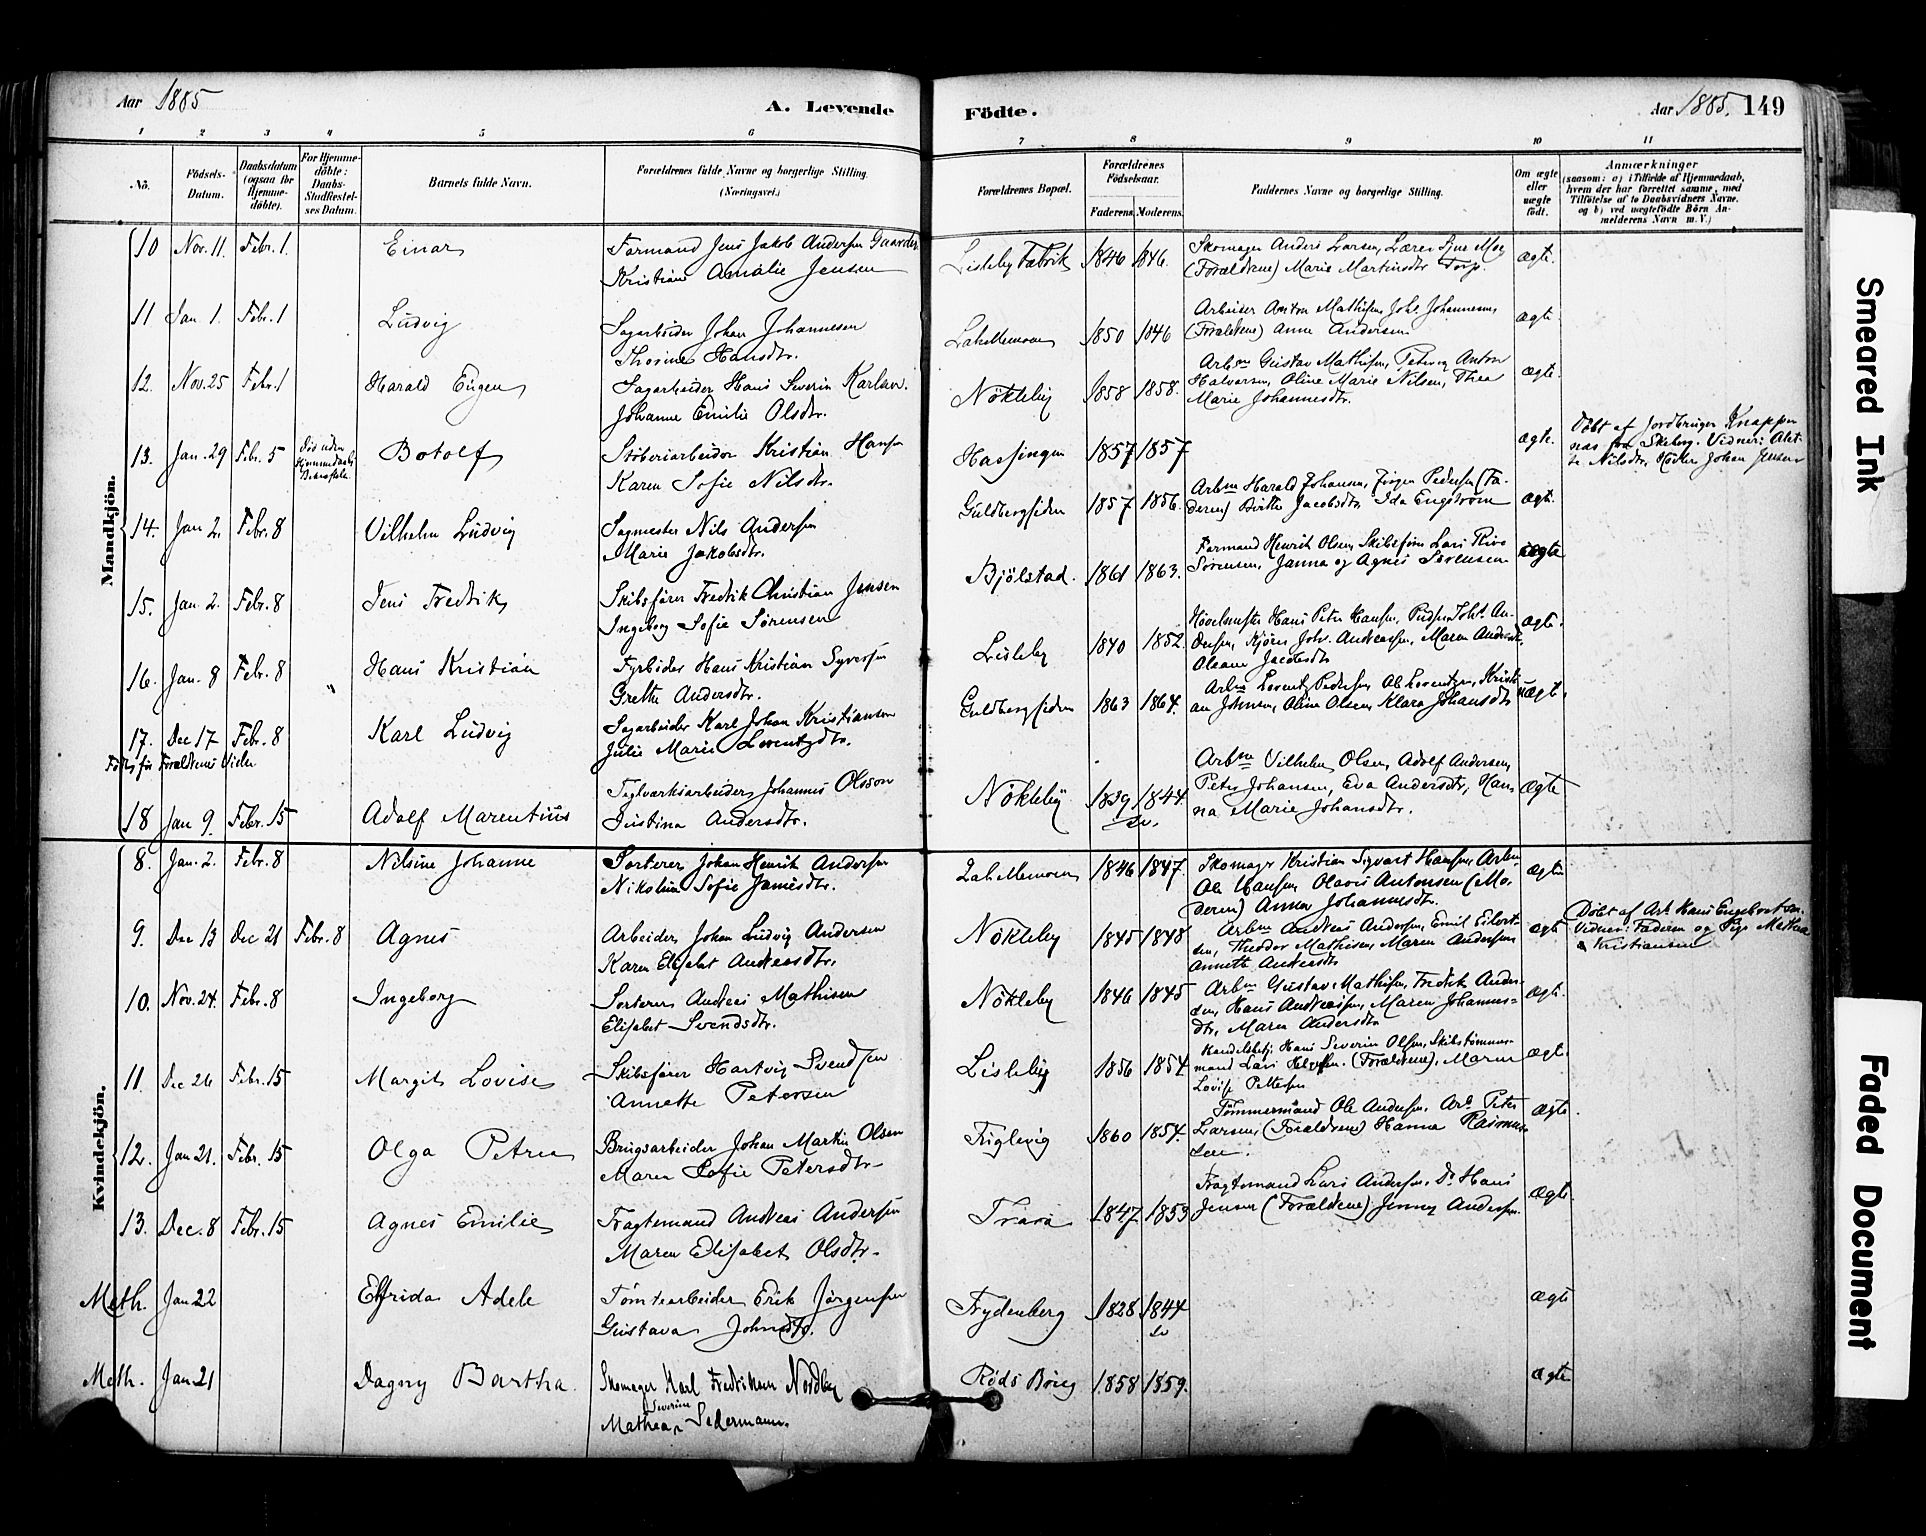 Aar 1885 A. Levende Födte. Aar 1885. 149
1 2 3 4 5 6 7 8 9 10 11
No. Födsels-Datum. Daabsdatum (ogsaa for Hjemmedöbte). For Hjemmedöbte: Daabs-Stadfæstelses Datum. Barnets fulde Navn. Forældrenes fulde Navne og borgerlige Stilling. (Næringsvei.) Forældrenes Bopæl. Forældrenes Födselsaar. Faderens Moderens. Faddernes Navne og borgerlige Stilling. Om ægte eller uægte födt. Anmærkninger (saasom: a) i Tilfælde af Hjemmedaab, hvem der har forrettet samme, med Tilföielse af to Daabsvidners Navne, og b) ved uægtefödte Börn Anmelderens Navn m. V.)
Mandkjön.
10 Nov. 11. Febr. 1. Einar Formand Jens Jakob Andersen Gaarder Lisleby Fabrik 1846 1846. Skomager Anders Larsen, Lærer
Kristiane Amalie Jensen (Forældrene) Marie Martinsdtr Torp. ægte.
11 Jan. 1. Febr. 1 Ludvig Sagarbeider Johan Johannesen 1850 1846 Arbeider Anton Mathisen, Johs. Johannesen
Thorine Hansdtr. (Forældrene) Anne Andersen ægte
12. Nov. 25 Febr. 1 Harald Eugen Sagarbeider Hans Severin Karlsen Nökleby 1858 1858. Arbm Gustav Mathisen, Anton
Johanne Emilie Olsdtr. Halvorsen, Oline Marie Nilsen, Thea
Marie Johannesdtr. ægte.
13. Jan. 29 Febr. 5 Död uden Hjemmedaabs Botolf Stöberiarbeider Kristian Hansen Hassingen 1857 1857 ægte. Döbt af Jordbruger
Karen Sofie Nilsdtr. fra Skeberg. Vidner: Nilsdtr, Johan Jensen
14. Jan 2. Febr. 8 Vilhelm Ludvig Sagmester Nils Andersen Guldbergsiden 1857 1856. Arbm Harald Johansen, Jörgen Pedersen (Fa-
Marie Jakobsdtr. deren) Birthe Jacobsdtr, Ida Engström ægte.
15. Jan. 2. Febr. 8 Jens Fredrik Skibsförer Fredrik Christian Jensen Bjölstad. 1861 1863. Formand Henrik Olsen, Skibsförer Lars
Ingeborg Sofie Sörensen Sörensen, Janna og Agnes Sörensen ægte
16. Jan. 8 Febr. 8 Hans Kristian Fyrböder Hans Kristian Syversen Lisleby 1840 1852. Hövelmester Hans Peter Hansen, Johs. An-
Grethe Andersdtr. dersen, Johs. Andreassen, Maren Andersdtr.
Oleane Jacobsdtr ægte.
17. Dec 17 Febr. 8 Karl Ludvig Sagarbeider Karl Johan Kristiansen Guldbergsiden 1863 1864. Arbm Lorentz Pedersen, Ole Lorentzen, Kristi-
Julie Marie Lorentzdtr. an Jensen, Oline Olsen, Klara Johansdtr ægte.
Födt för Forældrenes Vielse
18 Jan 9. Febr. 15 Adolf Marentius Teglværksarbeider Johannes Olsson Nökleby 1839 1844 Arbm Vilhelm Olsen, Adolf Andersen,
Justina Andersdtr. Peter Johansen, Eva Andersdtr, Han-
na Marie Johansdtr. ægte
Kvindekjön.
8. Jan. 2. Febr. 8 Nilsine Johanne Sorterer Johan Henrik Andersen 1846 1847. Skomager Kristian Sigvart Hansen, Arbm.
Nikoline Sofie Jensdtr. Ole Hansen, Antonsen (Mo-
deren) Anna Johannesdtr. ægte
9. Dec 13 Dec 21 Febr. 8 Agnes Arbeider Johan Ludvig Andersen Nökleby 1845 1848 Arbm Andreas Andersen, Emil Eilert-
Karen Elisabet Andreasdtr. sen, Theodor Mathisen, Maren Andersen
Annette Andersdtr ægte Döbt af Arb. Hans Engebretsen.
Vidner: Faderen og Pige Mathea
Kristiansen
10. Nov. 24. Febr. 8 Ingeborg Sorterer Andreas Mathisen Nökleby 1846 1845 Arbm Gustav Mathisen, Fredrik Ander-
Elisabet Svendsdtr. sen, Hans Andreassen, Maren Johannes-
dtr, Maren Andersdtr ægte.
11. Dec 26 Febr. 15 Margit Lovise Skibsförer Hartvig Svendsen Lisleby 1856 1854 Handelsbetj. Hans Severin Olsen, Skibstömmer-
Annette Petersen mand Lars (Forældrene), Maren
Lovise Pettersen ægte.
12. Jan 21. Febr. 15 Olga Petrea Brugsarbeider Johan Martin Olsen Teglevig 1860 1854. Tömmermand Ole Andersen, Arb. Peter
Maren Sofie Petersdtr Larsen, (Forældrene) Hanna Rasmus-
sen. ægte
13. Dec. 8 Febr. 15 Agnes Emilie Fragtemand Andreas Andersen Trara 1847 1853 Fragtemand Lars Andersen. Do Hans
Maren Elisabet Olsdtr. Jensen (Forældrene) Jenny Andersen. ægte
Meth. Jan 22 Elfrida Adele Tomtearbeider Erik Jörgensen Frydenberg 1828 1844 ægte
Gustava Johnsdtr.
Meth. Jan 21 Dagny Bartha. Skomager Karl Fredriksen Nordby Röds Brug 1858 1859. ægte
Severine
Mathea Sedermann.
Smeared Ink
Faded Document